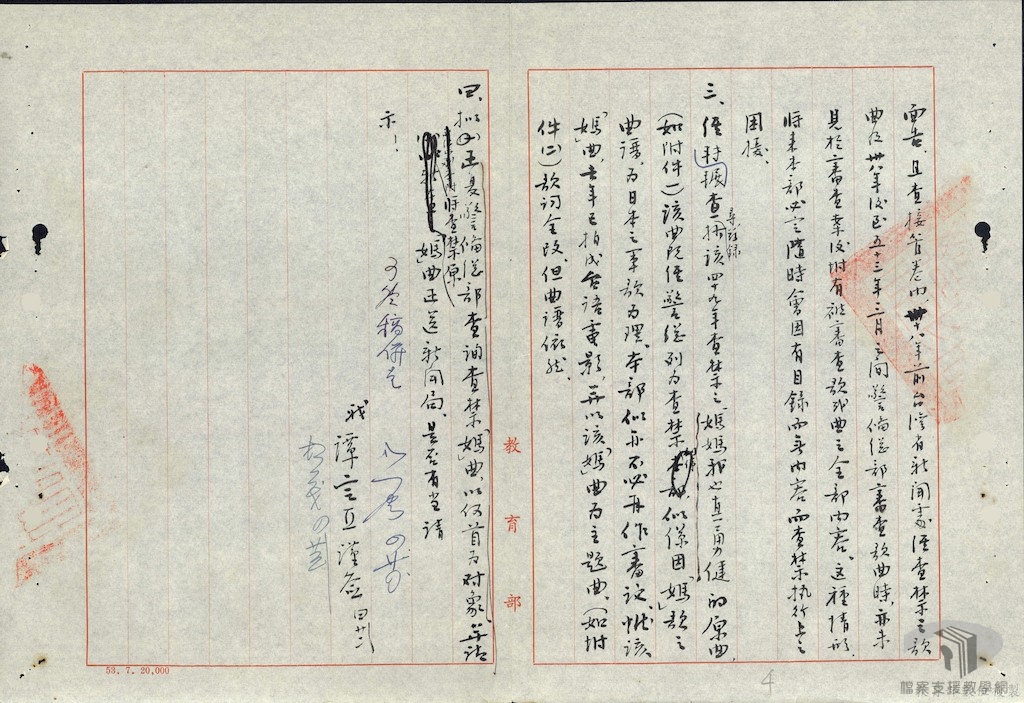 面告、且查接管卷內、卅八年前台灣省新聞處經查禁之歌
曲及卅八年後至五十三年三月之間警備總部審查歌曲時、亦未
見於審查案後附有被審查歌或曲之全部內容、這種情形、
將來本部必定隨時會因有目錄而無內容而查禁執行上之
困擾。
三、經查該四十九年查禁之「媽媽我也真勇健」的原曲、
尋到錄
(如附件一)該曲既經警總列為查禁、似係因「媽」歌之
曲譜、為日本之軍歌為理、本部似亦不必再作審議、惟該
「媽」曲、去年已拍成台語電影、并以該「媽」曲為主題曲、(如附
件(二))歌詞全改、但曲譜依然。
四、擬(1)正復警備總部查詢查禁「媽」曲、以何首為対象、并請
將查禁原
「媽」曲正送新聞局、是否有当請
示!
可簽稿併呈
職 譚 謹簽
教育部
53. 7. 20,000
4
檔案支援教學網